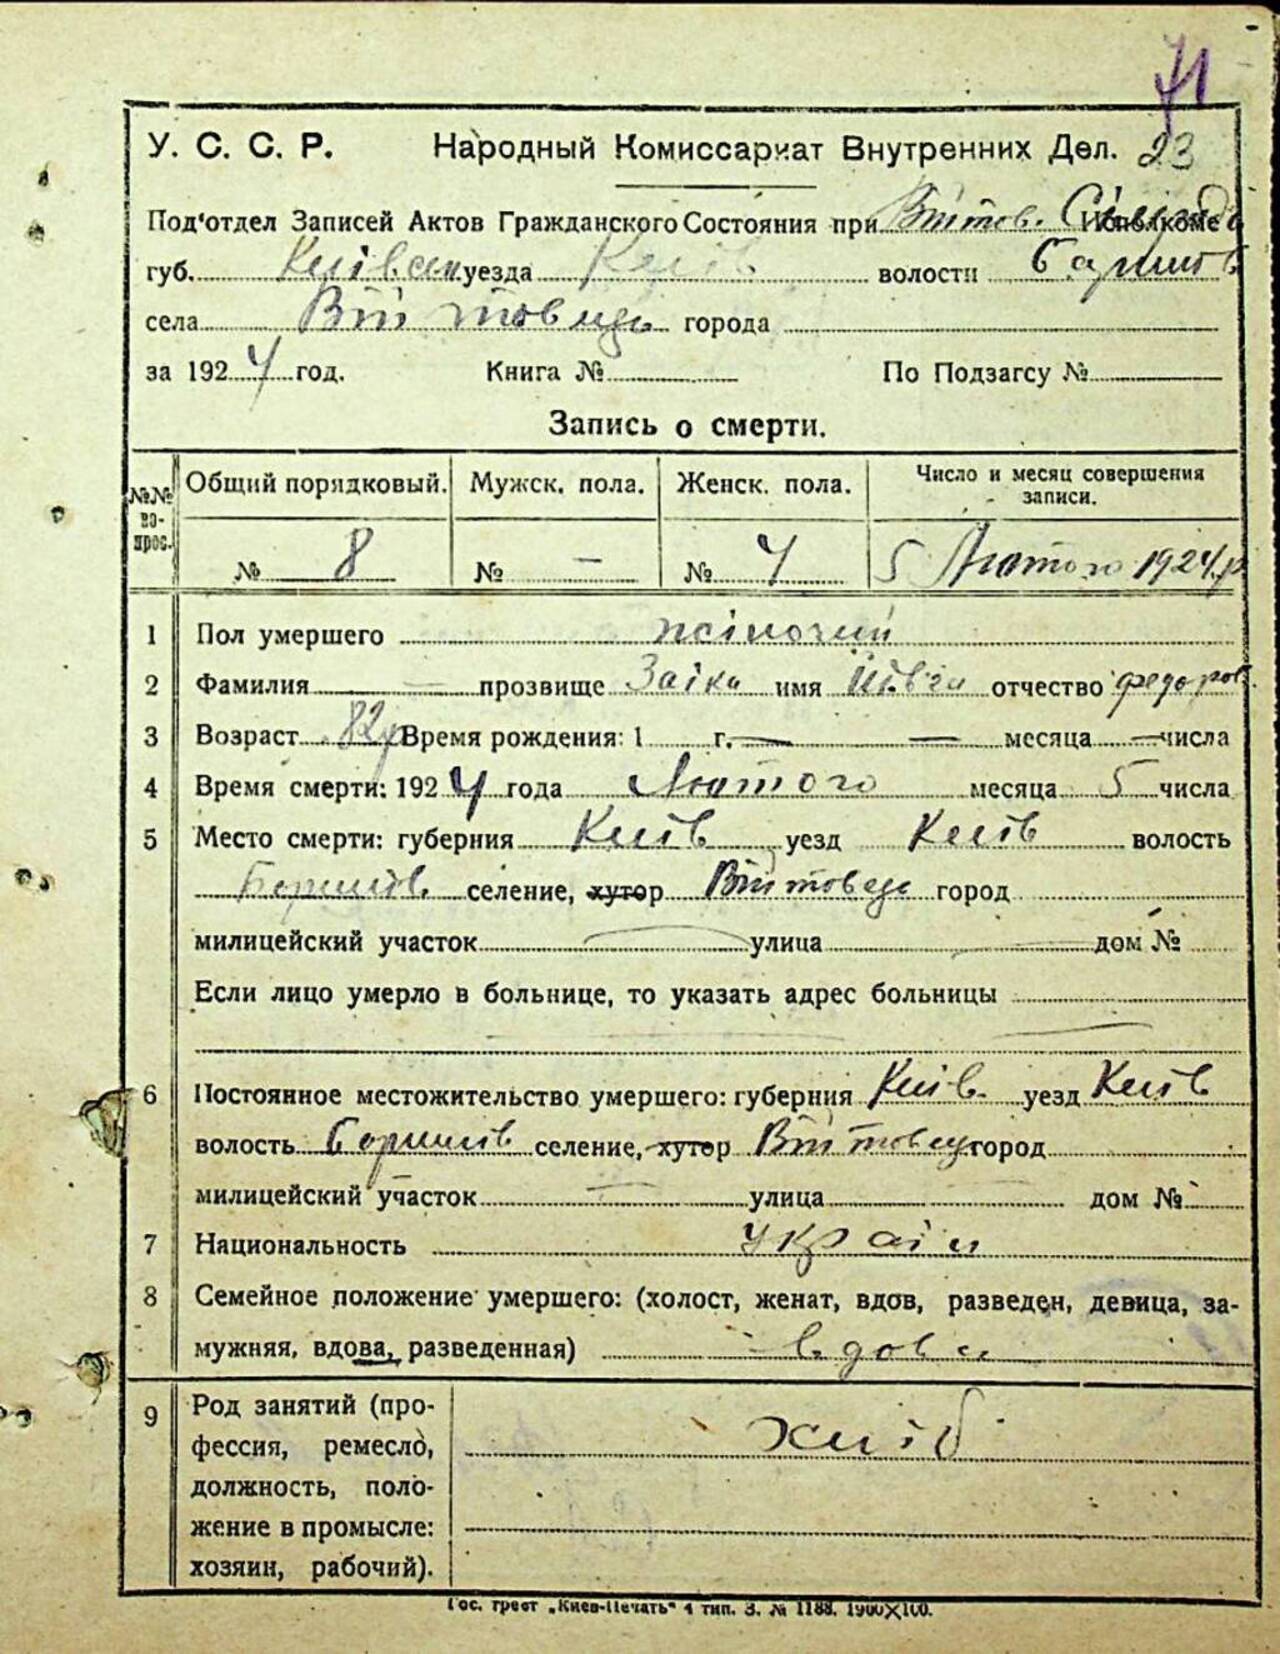 71
У. С. С. Р. Народный Комиссариат Внутренних Дел. 23
Под'отдел Записей Актов Гражданского Состояния при Війтов. Исполкоме
губ. Київськ уезда Київ волости
села Війтовець города
за 1924 год. Книга № По Подзагсу №
Запись о смерти.
№№ вопрос. Общий порядковый. Мужск. пола. Женск. пола. Число и месяц совершения записи.
№ 8 № — № 4 5 Лютого 1924 р
1 Пол умершего жіночий
2 Фамилия — прозвище Заіка имя отчество федоров.
3 Возраст 82р Время рождения: 1 г. — — месяца — числа
4 Время смерти: 1924 года Лютого месяца 5 числа
5 Место смерти: губерния Київ уезд Київ волость
селение, хутор Війтовець город
милицейский участок улица дом №
Если лицо умерло в больнице, то указать адрес больницы
6 Постоянное местожительство умершего: губерния Київ. уезд Київ
волость селение, хутор Війтовець город
милицейский участок — улица дом №
7 Национальность Україн
8 Семейное положение умершего: (холост, женат, вдов, разведен, девица, за-
мужняя, вдова, разведенная) вдова
9 Род занятий (про-
фессия, ремесло,
должность, поло-
жение в промысле:
хозяин, рабочий).
Гос. трест „Киев-Печать" 4 тип. З. № 1188. 1900×100.